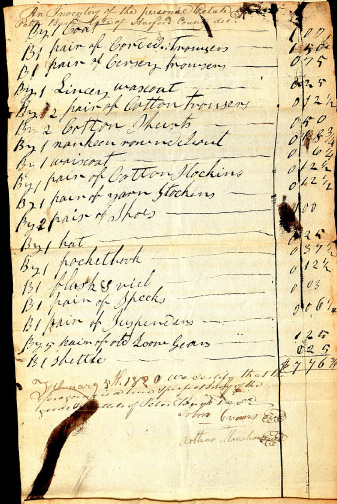 An Inventory of the personal Estate
of Harford County decd
By 1 Coat 1 00
By 1 pair of Corded Trowsers 1 50
By 1 pair of Cersey trowsers 0 75
By 1 Lincey wascout 0 25
By 2 pair of Cotton trowsers 0 12½
By 2 Cotton Shurts 0 50
By 1 nankeen roundabout
By 1 waiscoat
By 1 pair of Cotton Stockins 0 12½
By 1 pair of yarn Stockins 0 12½
By 2 pair of Shoes 1 00
By 1 hat 0 25
By 1 pocketbook 0 37½
By 1 flask & viel 0 12½
By 1 pair of Specks 0 03
By 1 pair of Suspendars 0 06¼
By 5 pair of old Loone Gears 1 25
By 1 Shettle 0 25
$ 7 76
February 5th 1820 we certify that the
of the
John Evans
Arthur